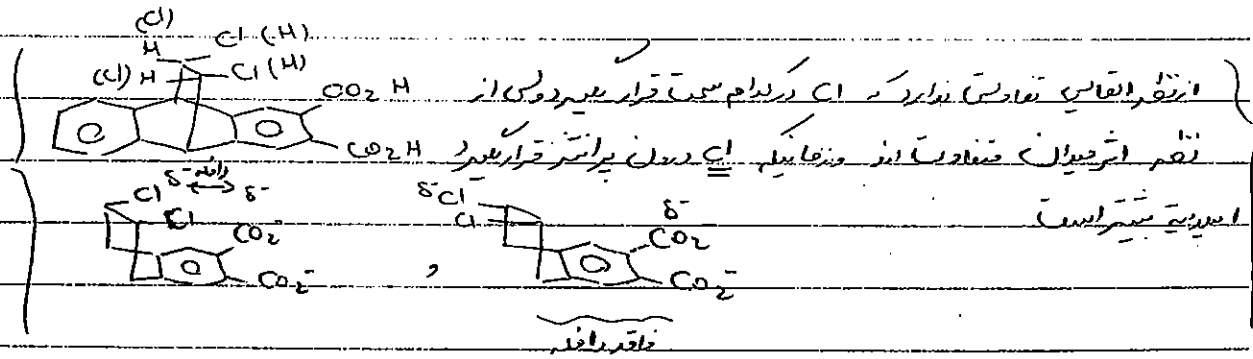 (Cl)
H Cl (H)
(Cl) H Cl (H)
CO2H
CO2H
از نظر القایی تفاوتی ندارد که Cl در کدام سمت قرار بگیرد ولی از
نظر اثر میدان متفاوت اند و زمانیکه Cl درون پرانتز قرار بگیرد
اسیدیته بیشتر است
Cl δ- دافعه δ-
Cl CO2-
CO2-
,
δ- Cl δ-
Cl CO2
CO2-
فاقد دافعه